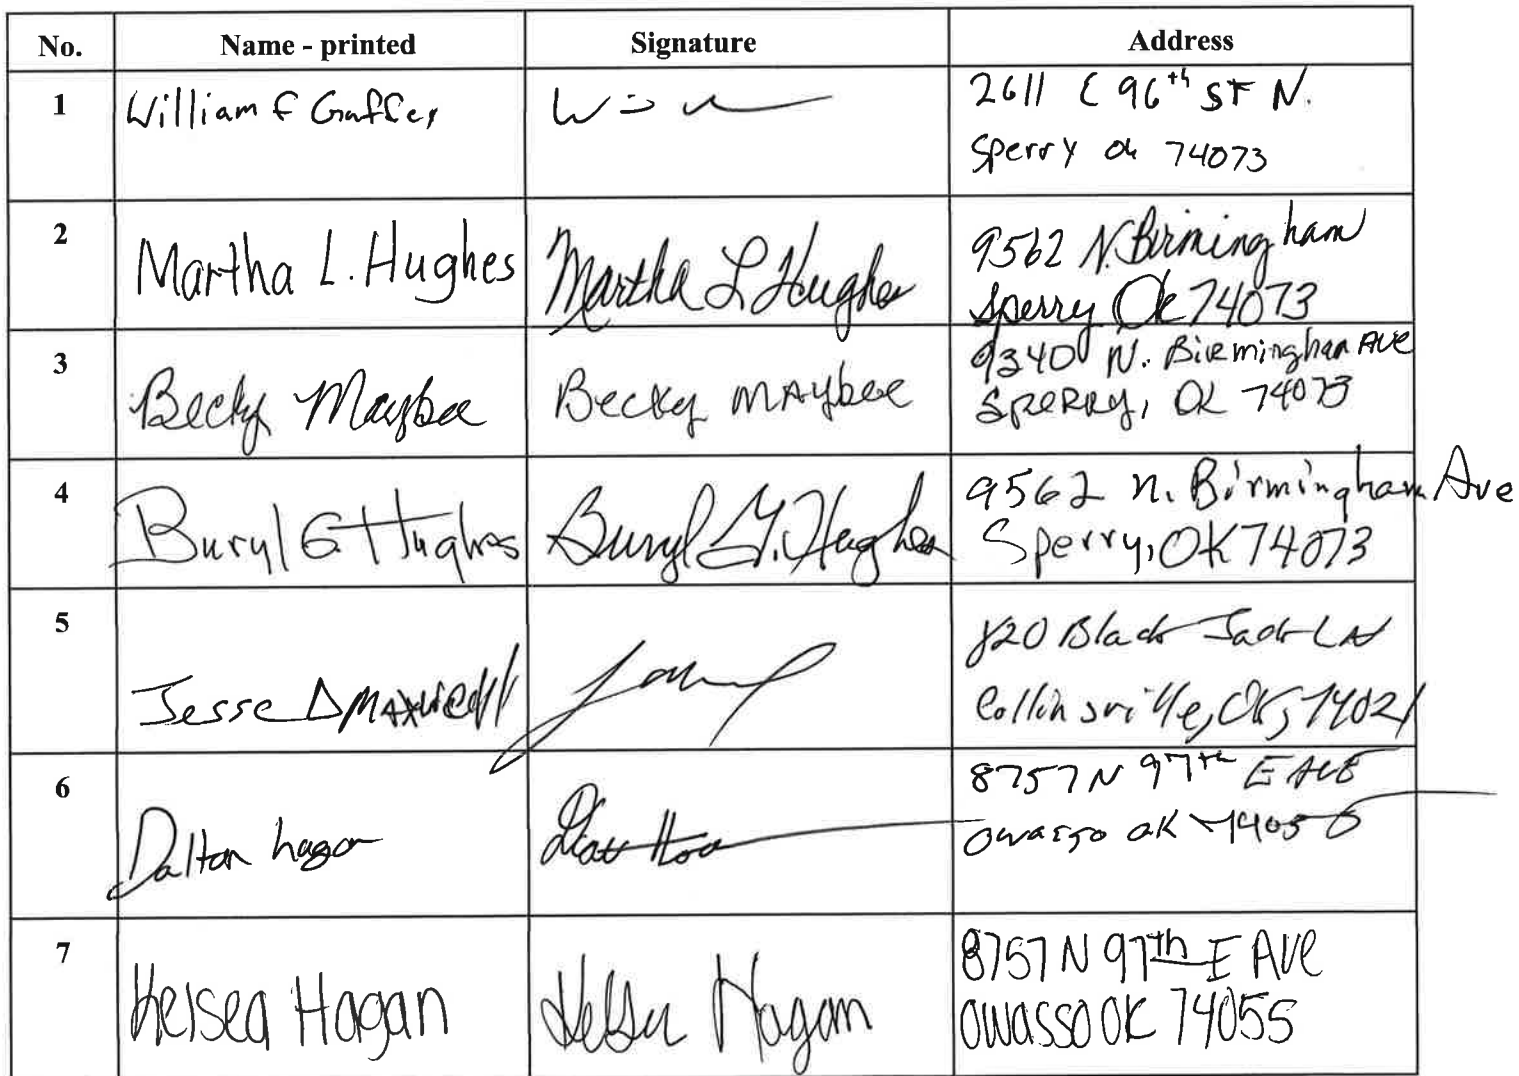 No. Name - printed Signature Address
1 William F Gaffey 2611 E 96th St N.
Sperry Ok 74073
2 Martha L. Hughes Martha L Hughes 9562 N. Birmingham
Sperry Ok 74073
3 Becky Maybee Becky Maybee 9340 N. Birmingham Ave
Sperry, OK 74073
4 Buryl G. Hughes Buryl G. Hughes 9562 N. Birmingham Ave
Sperry, OK 74073
5 Jesse D Maxwell 820 Black Jack LN
Collinsville, OK, 74021
6 Dalton hagan 8757 N 97th E AVE
Owasso OK
7 Kelsea Hagan Kelsea Hagan 8757 N 97th E Ave
Owasso OK 74055